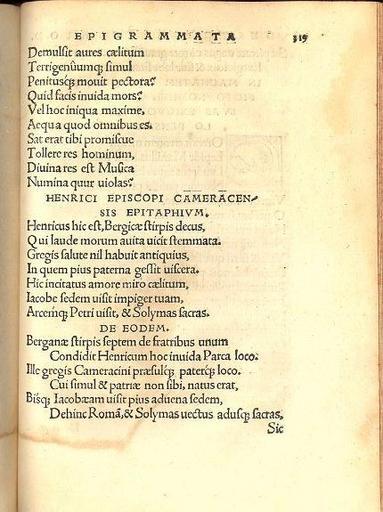 EPIGRAMMATA 319
Demulsit aures cælitum
Terrigenûumq; simul
Penitusq; mouit pectora?
Quid facis inuida mors?
Vel hoc iniqua maxime,
Aequa quod omnibus es.
Sat erat tibi promiscue
Tollere res hominum,
Diuina res est Musica
Numina quur uiolas?
HENRICI EPISCOPI CAMERACEN-
SIS EPITAPHIVM.
Henricus hic est, Bergicæ stirpis decus,
Qui laude morum auita uicit stemmata.
Gregis salute nil habuit antiquius,
In quem pius paterna gessit uiscera.
Hic incitatus amore miro cælitum,
Iacobe sedem uisit impiger tuam,
Arcemq; Petri uisit, & Solymas sacras.
DE EODEM.
Berganæ stirpis septem de fratribus unum
Condidit Henricum hoc inuida Parca loco.
Ille gregis Cameracini præsulq; paterq; loco.
Cui simul & patriæ non sibi, natus erat,
Bisq; Iacobæam uisit pius aduena sedem,
Dehinc Romã, & Solymas uectus adusq; sacras.
Sic